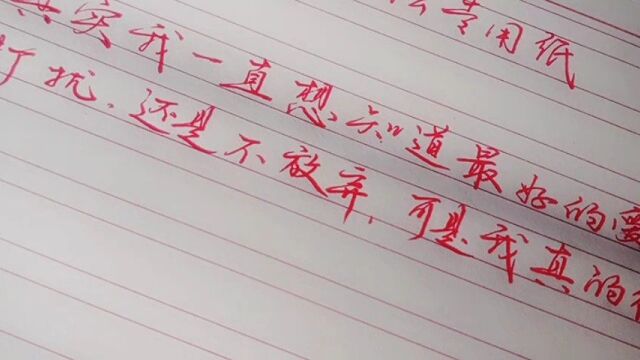 专用纸
其实我一直想知道最好的爱
打扰,还是不放弃,可是我真的很